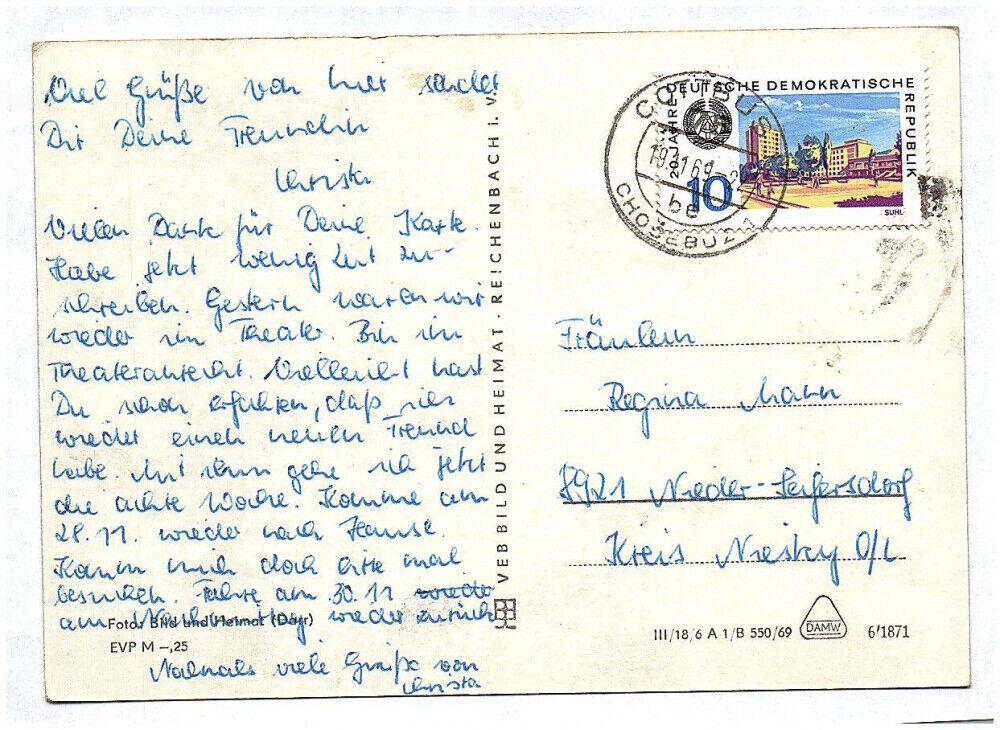 Viel Grüße von hier sendet
Dir Deine Freundin
Christa
Vielen Dank für Deine Karte.
Habe jetzt wenig Zeit zu-
schreiben. Gestern waren wir
wieder im Theater. Bin im
Theateranrecht. Vielleicht hast
Du schon erfahren, daß ich
wieder einen neuen Freund
habe. Mit ihm gehe ich jetzt
die achte Woche. Komme am
28.11. wieder nach Hause.
Kannst mich doch bitte mal
besuchen. Fahre am 30.11 wieder
am Nachmittag wieder zurück
Foto: Bild und Heimat (Darr)
EVP M –,25
Nochmals viele Grüße von
Christa
VEB BILD UND HEIMAT · REICHENBACH I. V.
DEUTSCHE DEMOKRATISCHE
REPUBLIK
20 JAHRE
10
SUHL
COTTBUS
19.11.69
be
CHOŚEBUZ 1
Fräulein
Regina Mann
8921 Nieder-Seifersdorf
Kreis Niesky O/L
III/18/6 A 1/B 550/69
DAMW
6/1871